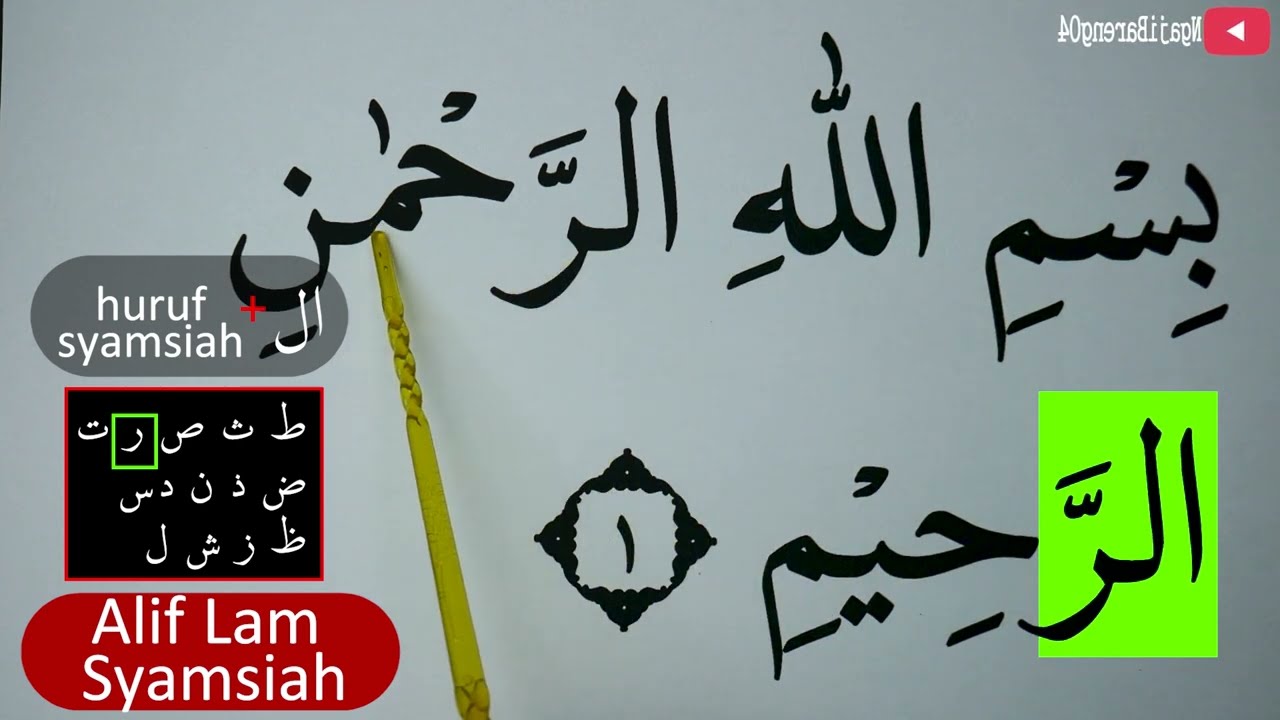 NgajiBareng04
بِسْمِ اللّٰهِ الرَّحْمٰنِ
الرَّحِيْمِ ١
huruf syamsiah + ال
ط ث ص ر ت
ض ذ ن د س
ظ ز ش ل
Alif Lam
Syamsiah